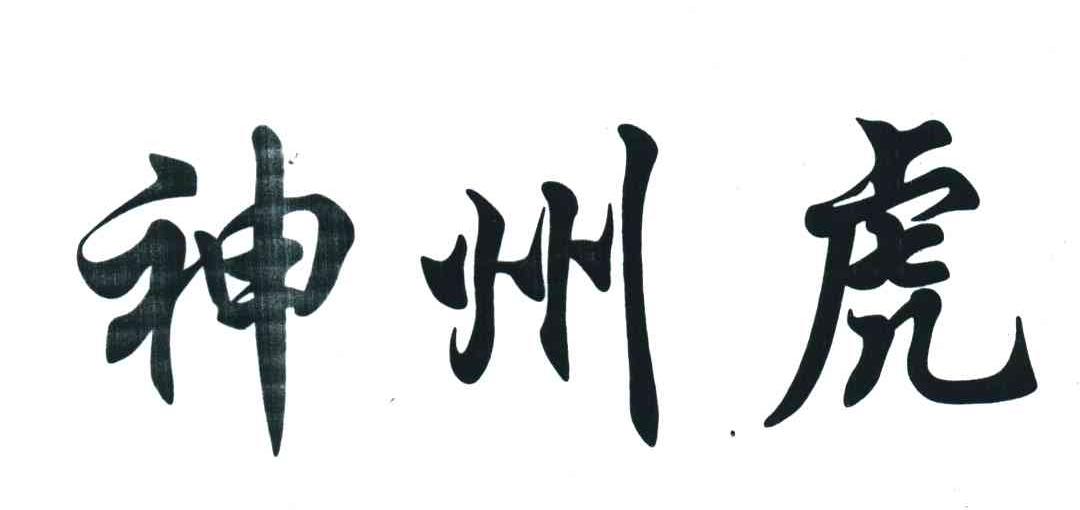 神州虎